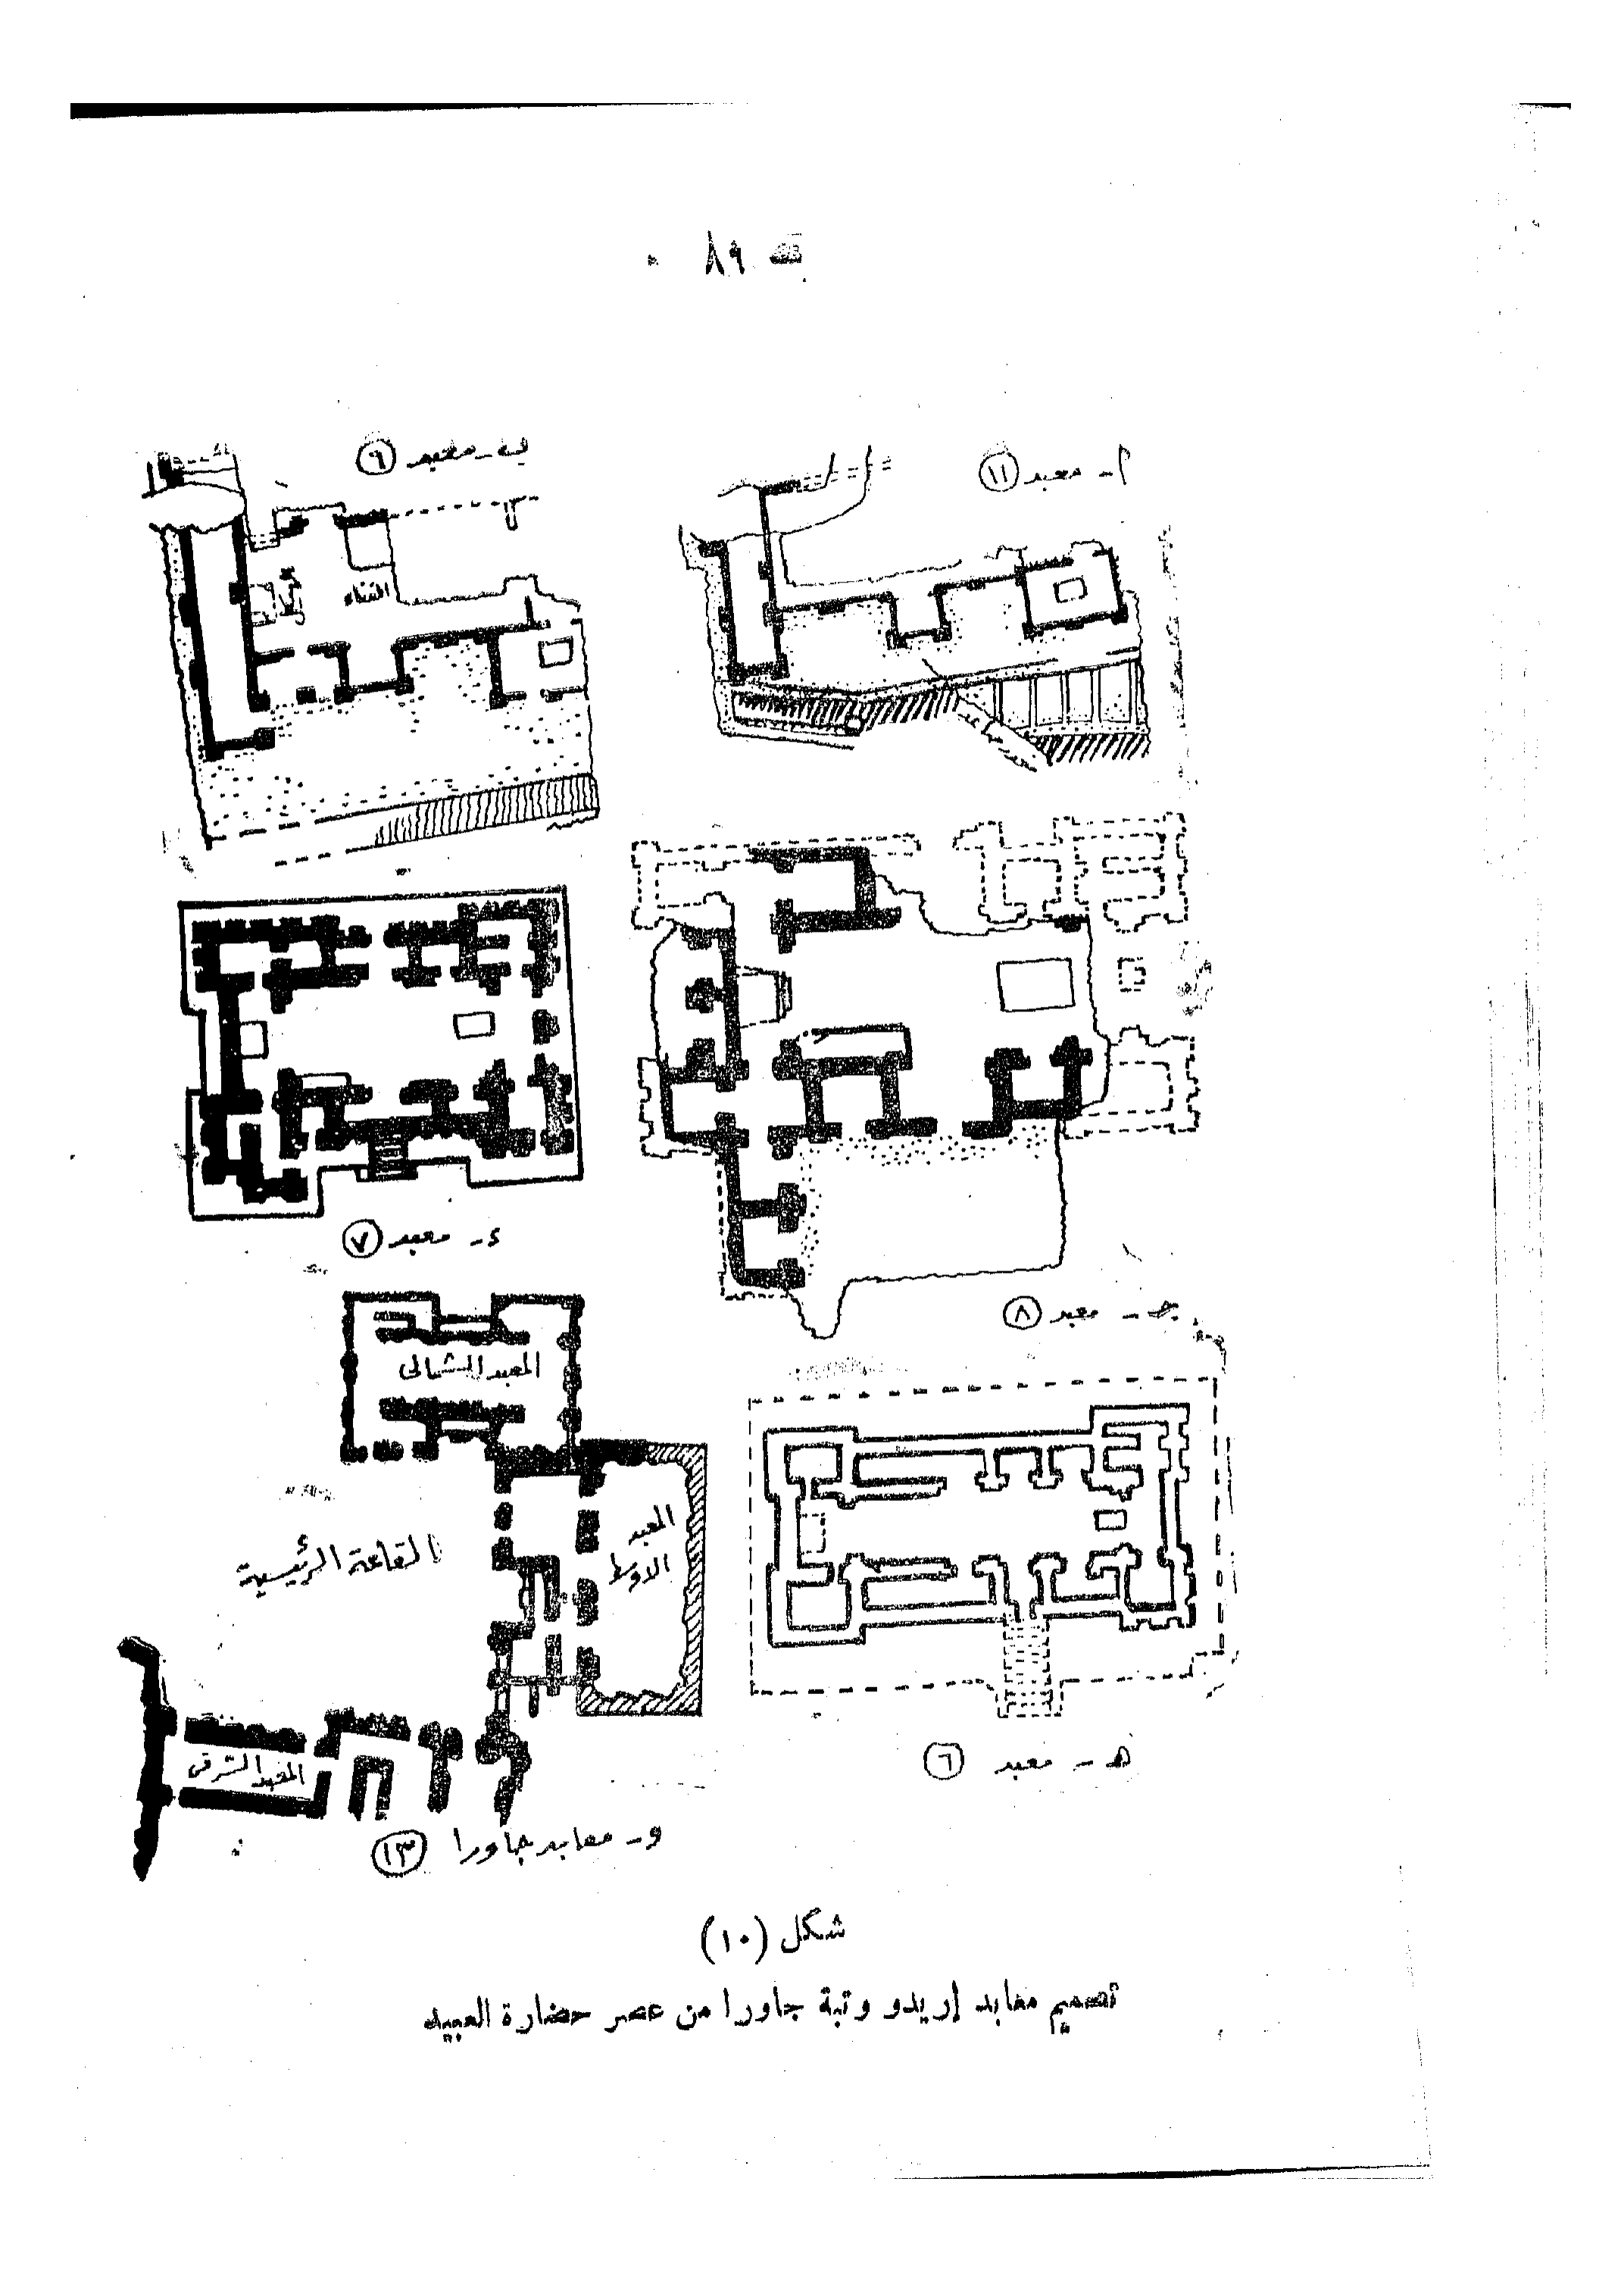 ٨٩
أ - معبد ١١
ب - معبد ٩
الفناء
جـ - معبد ٨
د - معبد ٧
المعبد الشمالى
المعبد
الاوسط
القاعة الرئيسية
المعبد الشرقى
هـ - معبد ٦
و - معابد جاورا ١٣
شكل (١٠)
تصميم معابد إريدو وتبة جاورا من عصر حضارة العبيد